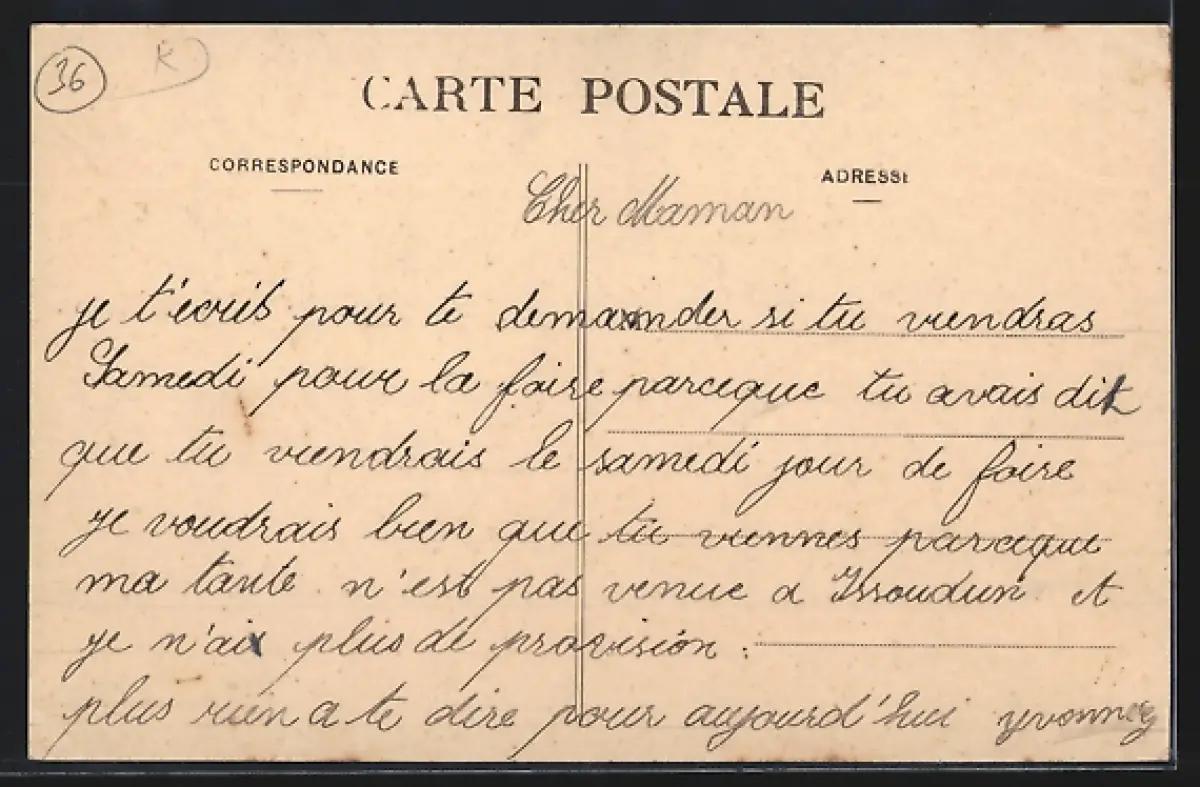 36 K
CARTE POSTALE
CORRESPONDANCE
ADRESSE
Cher Maman
je t'écris pour te demander si tu viendras
Samedi pour la foire parceque tu avais dit
que tu viendrais le samedi jour de foire
je voudrais bien que tu viennes parceque
ma tante n'est pas venue a Issoudun et
je n'ai plus de provision.
plus rien a te dire pour aujourd'hui yvonne